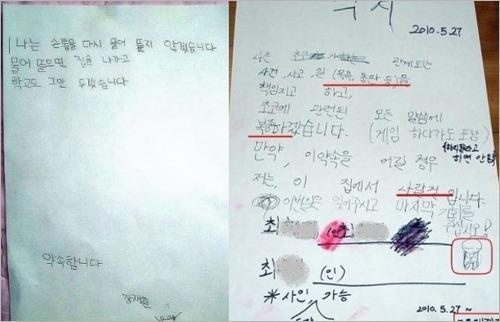 나는 손톱을 다시 물어 뜯지 않겠습니다
물어 뜯으면 집을 나가고
학교도 그만 두겠습니다
약속합니다
각서
2010.5.27
나는 초코 관계되는
사건, 사고, 일 (목욕, 똥딴 등)을
책임지고 하고,
초코에 관련된 모든 말씀에
복종하겠습니다. (게임 하다가도 포함)
만약, 이 약속을 어길 경우
하면 안됨
저는, 이 집에서 사람전 입니다.
이번일은 잊어주시고 마지막 기회를
최
(인)
최 (인)
*사인 가능
2010.5.27 ~